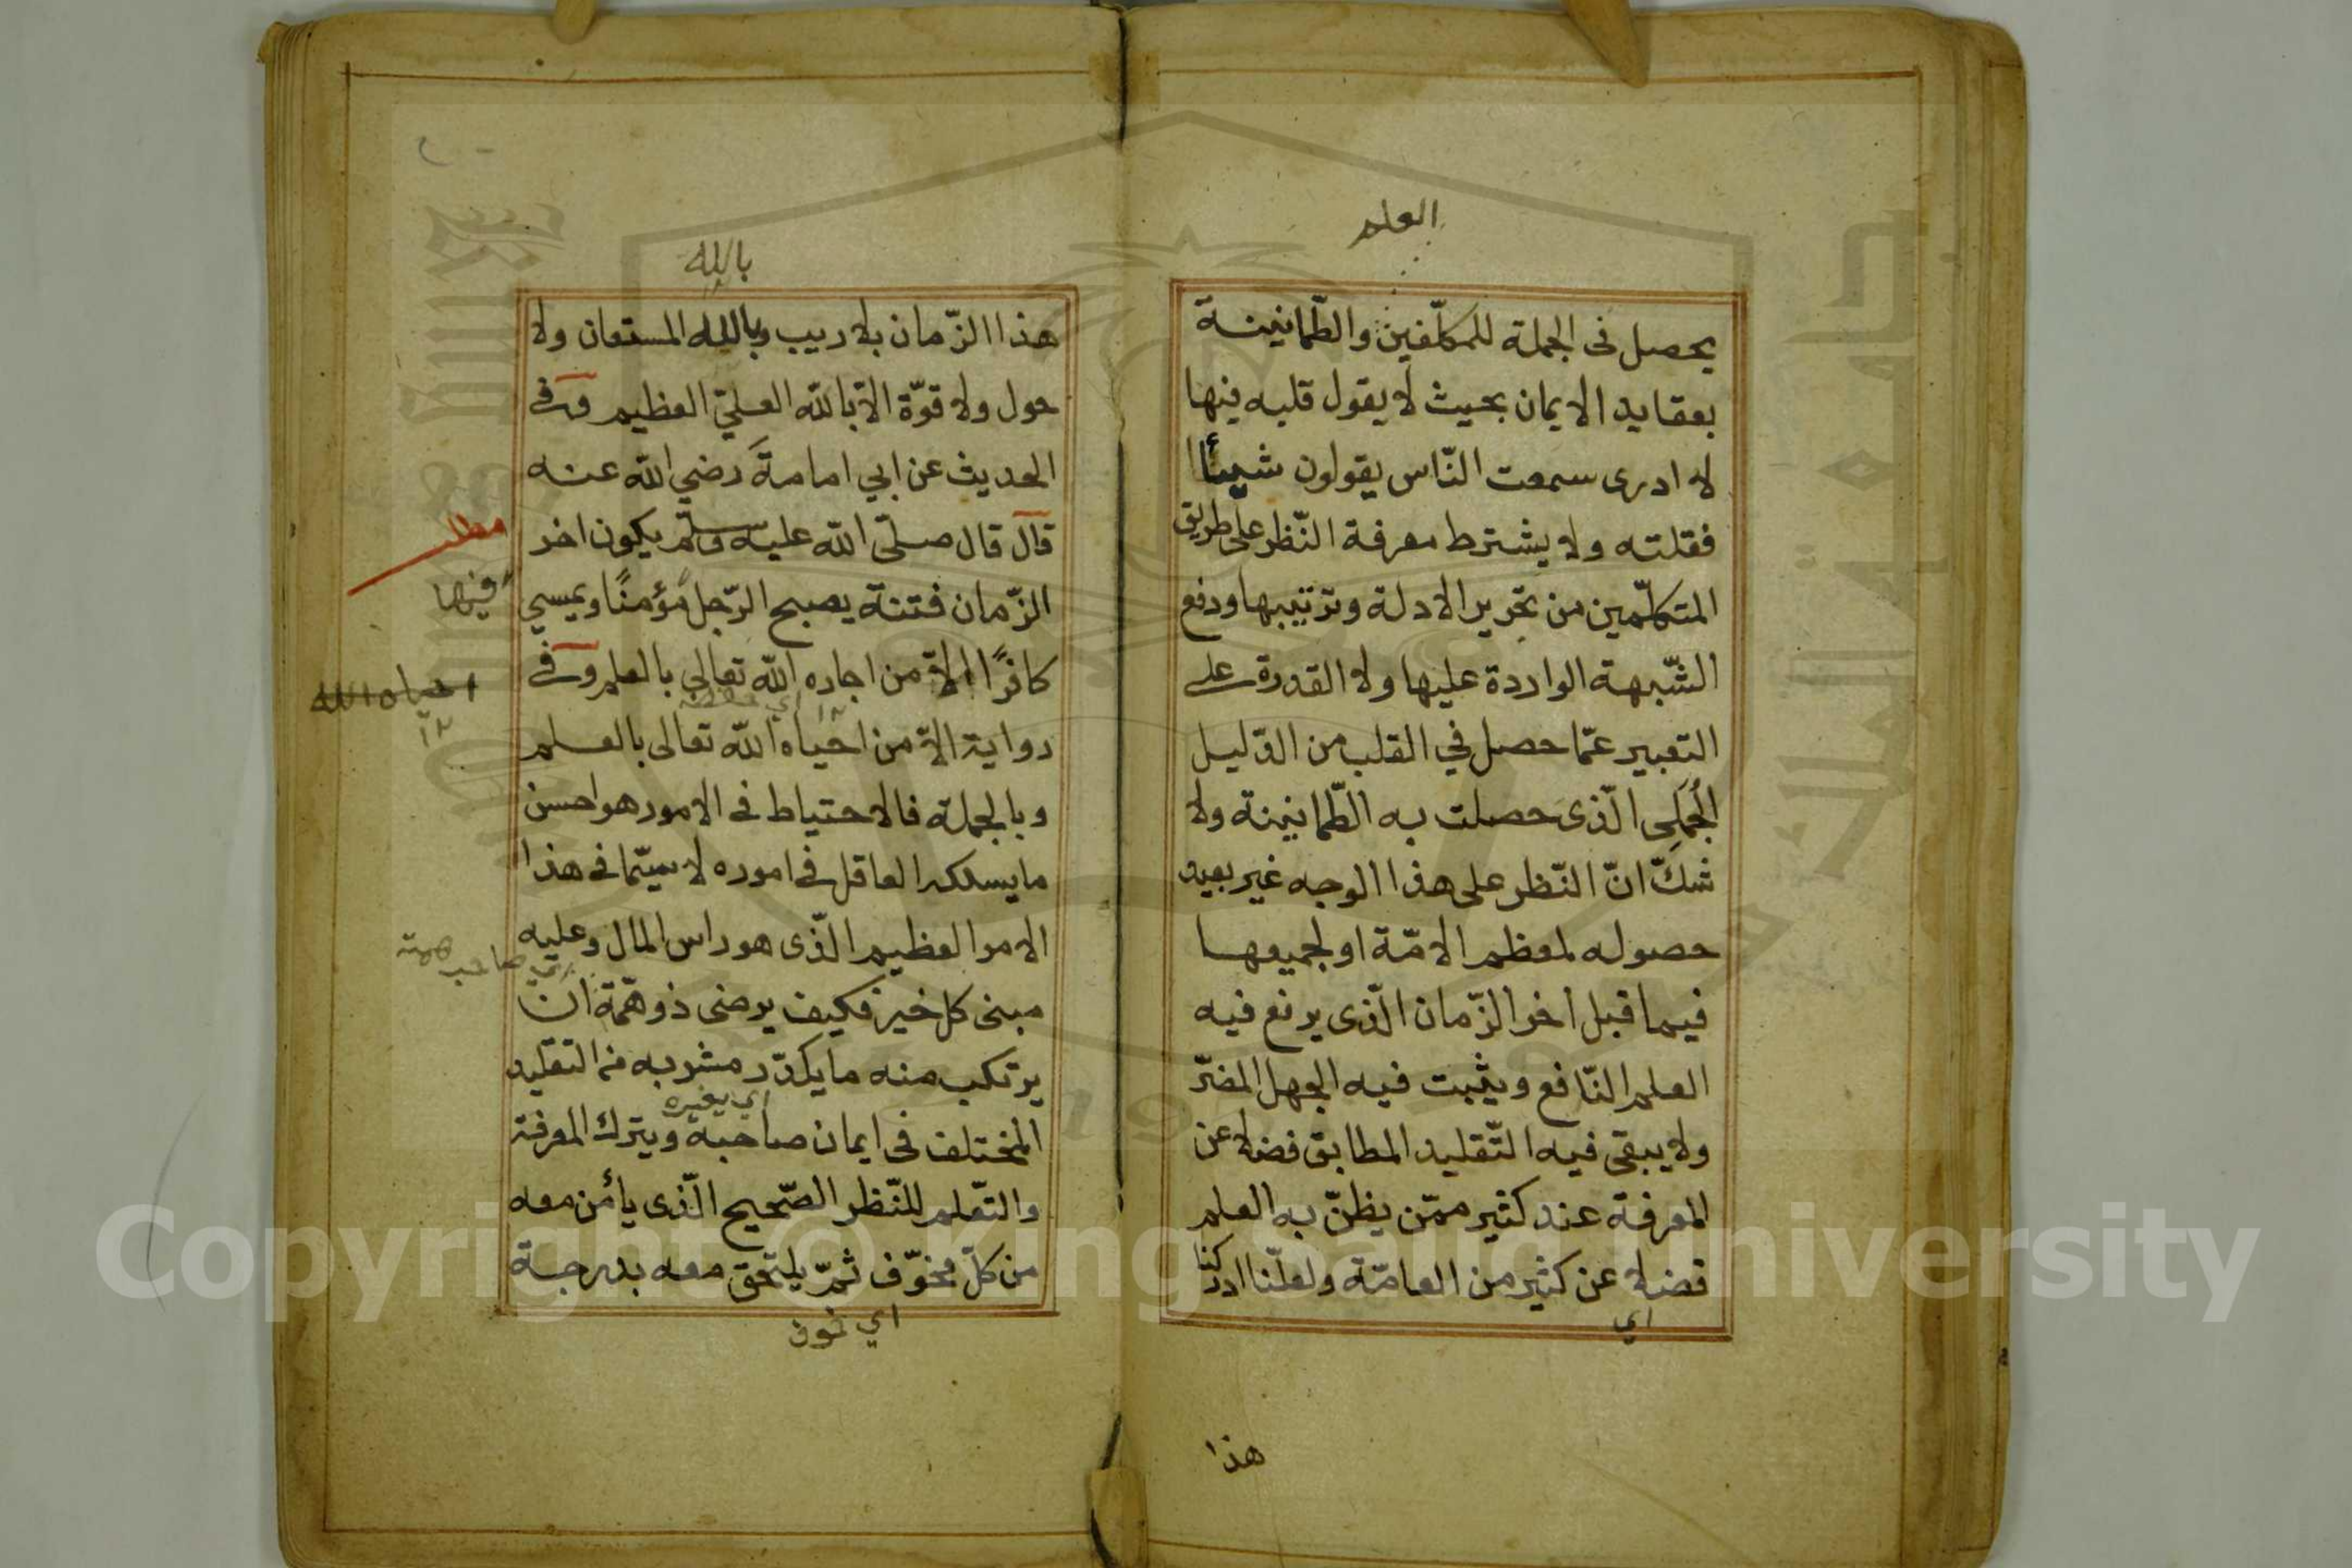 العلم
يحصل فى الجملة للمكلّفين والطّمانينة
بعقايد الايمان بحيث لا يقول قلبه فيها
لا ادرى سمعت النّاس يقولون شيئًا
فقلته ولا يشترط معرفة النّظر على طريق
المتكلّمين من تحرير الادلة وترتيبها ودفع
الشّبهة الواردة عليها ولا القدرة على
التعبير عمّا حصل في القلب من الدّليل
الجُمَلى الّذى حصلت به الطّمانينة ولا
شكّ انّ النّظر على هذا الوجه غير بعيد
حصوله لمعظم الامّة او لجميعها
فيما قبل اخر الزّمان الّذى يرفع فيه
العلم النّافع ويثبت فيه الجهل المضرّ
ولا يبقى فيه التّقليد المطابق فضلا عن
المعرفة عند كثير ممّن يظنّ به العلم
فضلا عن كثير من العامّة ولعلّنا ادركنا
اي
هذا
بالله
هذا الزّمان بلا ريب وبالله المستعان ولا
حول ولا قوّة الّا بالله العليّ العظيم وفى
الحديث عن ابي امامة رضي الله عنه
قال قال صلّى الله عليه وسلّم يكون اخر
مطلب
الزّمان فتنة يصبح الرّجل مؤمنًا ويمسي
فيها
كافرًا الّا من اجاره الله تعالى بالعلم وفى
احياه الله
رواية الّا من احياه الله تعالى بالعلم
وبالجملة فالاحتياط فى الامور هو احسن
ما يسلكه العاقل فى اموره لا سيّما فى هذا
الامر العظيم الّذى هو راس المال وعليه
اي صاحب همة
مبنى كل خير فكيف يرضى ذو همّة ان
يرتكب منه ما يكدّر مشربه من التقليد
اي يغيره
المختلف فى ايمان صاحبه ويترك المعرفة
والتّعلم للنّظر الصّحيح الّذى يأمن معه
من كلّ مخوّف ثمّ يلتحق معه بدرجة
اي خوف
Copyright © King Saud University